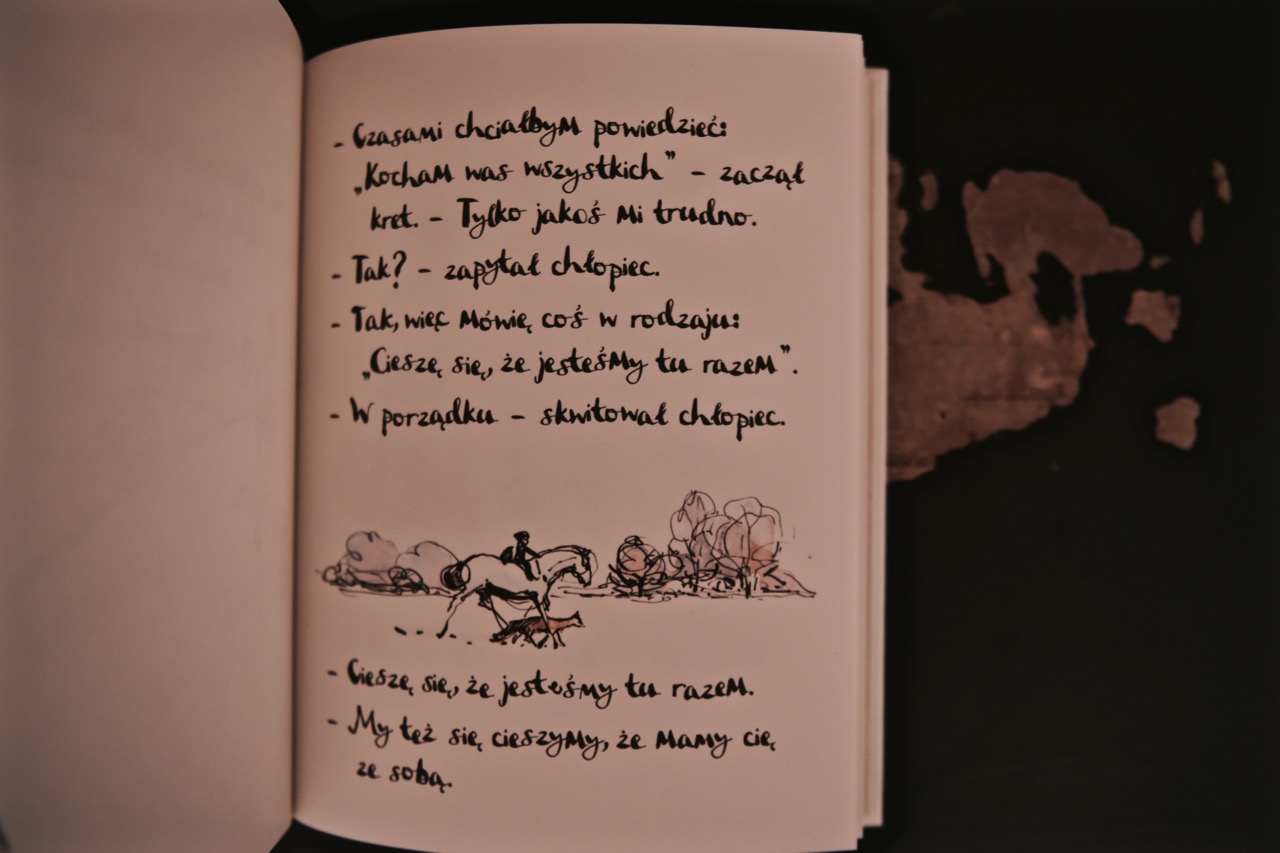 - Czasami chciałbym powiedzieć:
„Kocham was wszystkich" - zaczął
kret. - Tylko jakoś mi trudno.
- Tak? - zapytał chłopiec.
- Tak, więc mówię coś w rodzaju:
„Cieszę się, że jesteśmy tu razem".
- W porządku - skwitował chłopiec.
- Cieszę się, że jesteśmy tu razem.
- My też się cieszymy, że mamy cię
ze sobą.